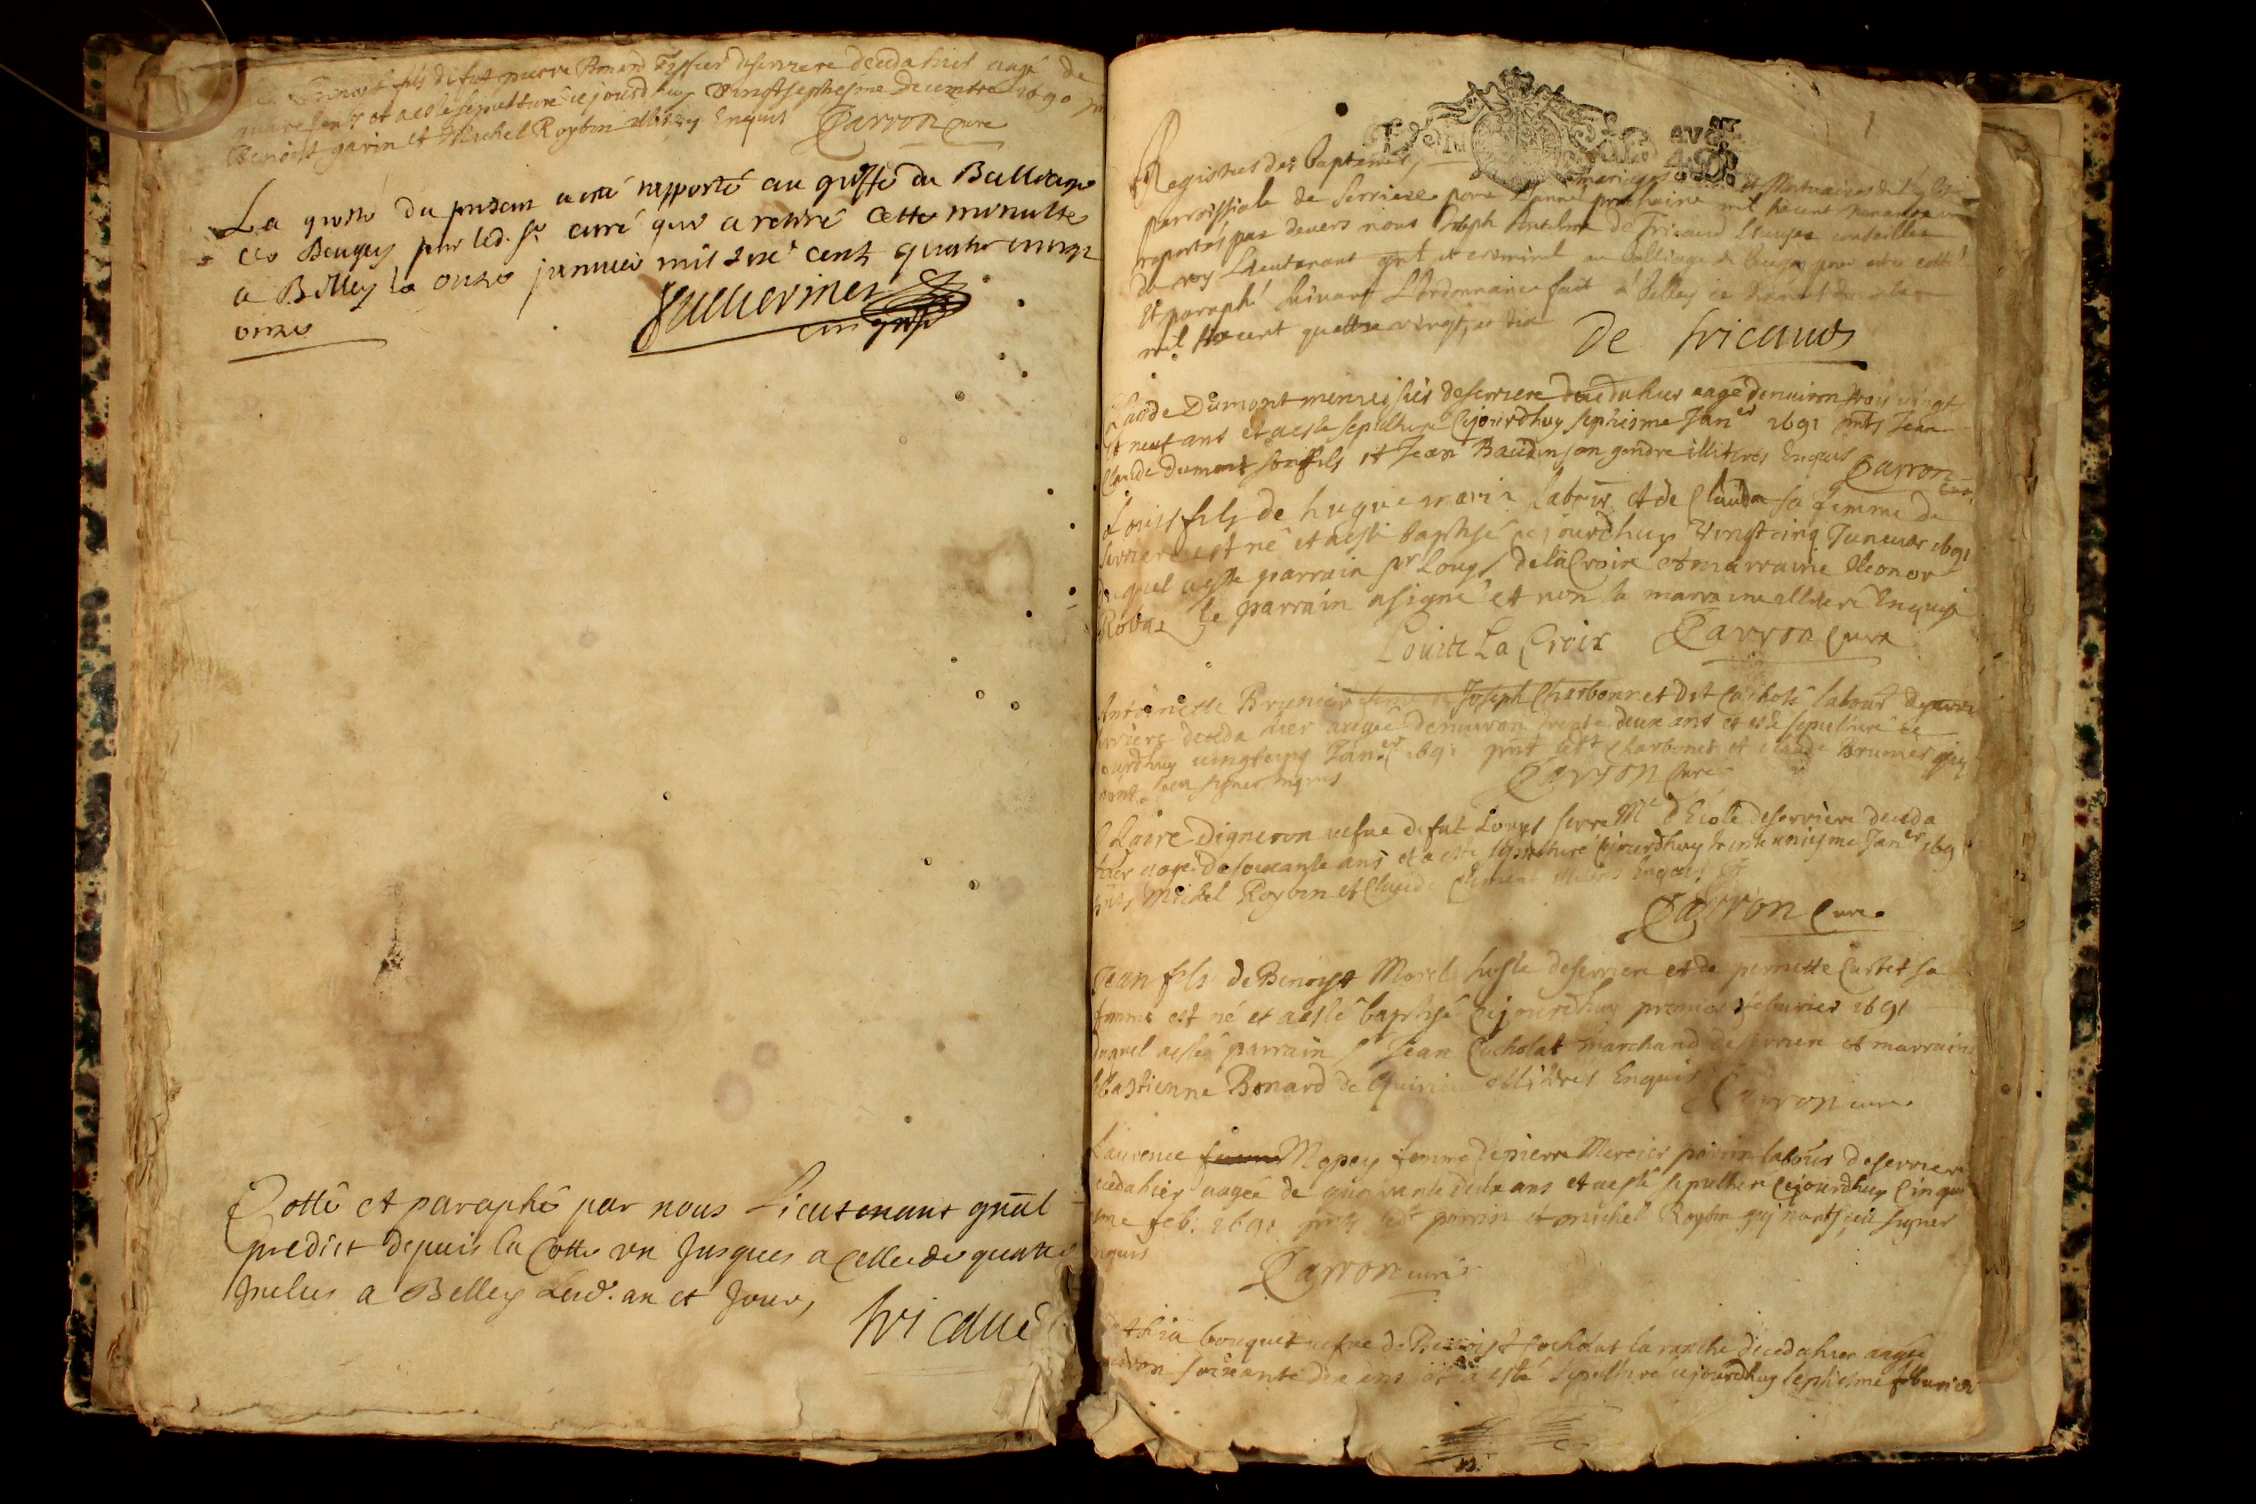 Benoist fils de fut pierre Bonard Tissier deserriere deceda hier aagé de
quarente et aeste sepulturé cejourdhuy vingtsephiesme decembre 1690
Benoist garin et Michel Roybin Enquis Carron Cure
La grosse du present a esté rapporté au greffe du Bailliage
de Beugey par led. Sr curé qui a retiré cette minutte
a Belley le onze janvier mil six cent quatre vingt
onze
Cotté et paraphé par nous Lieutenant gnãl
predict depuis la Cotte un Jusques a Celle de quatre
Inclus a Belley Lesd. an et Jour,
fricaud
Registres des baptemes, mariages et Mortuaires de l'Eglise
parroissiale de Serriere pour L'année prochaine mil sixcent nonante un
raportés par devers nous Joseph Anselme de Fricaud Escuyer conseiller
du roy Lieutenant gnl et criminel au bailliage de beugey pour estre cotté
Et paraphé suivant L'ordonnance fait a Belley ce
mil sixcent quattre vingts et dix
De fricauds
Claude Dumont menuisier deserriere deceda hier aagé denuiron trois vingt
et neuf ans et aeste sepulturé Cejourdhuy sephiesme Janer 1691 pnts Jean
Claude Dumont son fils et Jean Baudin son gendre illiteres Enquis Carron
Cure
Louis fils de hugue marin labour et de Clauda sa femme de
serriere est né et aesté baptisé cejourdhuy Vingtcinq Januier 1691
duquel aeste parrain Sr Louys de la Croix et marraine Eleonor
Le parrain a signé et non la marraine illitere Enquise
Louis La Croix Carron Cure
Antoinette Brunier Joseph Charbonnet dit Cachot labour
serriere deceda hier aagée denuiron trente deux ans et esté sepulturé ce
jourdhuy Janer 1691 pnt ledt Charbonet et Claude Brunier qui
nont sceu signer enquis Carron Cure
Claire Digneron vefue de fut Louys serre Me d'Ecole deserriere deceda
hier aagé de soixante ans et a esté sepulturé Cejourdhuy trente uniesme Janer 1691
pnts Michel Roybin et Claude Clement illiteres Enquis
Carron Cure
Jean fils de Benoyst Morel deserriere et de pernette Curtet sa
femme est né et aesté baptisé Cejourdhuy premier feburier 1691
duquel aesté parrain Sr Jean Cocholat marchand deserriere et marraine
Bastienne Bonard de Quirieu illiteres Enquis
Carron cure
Laurence femme de pierre Mercier perrin labour deserriere
deceda hier aagée de quarante deux ans et aesté sepulturé Cejourdhuy Cinquie
sme feb. 1691 pnts ledt perrin et michel Roybin qui nonts sceu signer
enquis
Carron cure
bouquet vefue de Benoist Cocholat deceda hier aagée
denuiron soixante dix ans et a esté sepulturé cejourdhuy sephiesme feburier